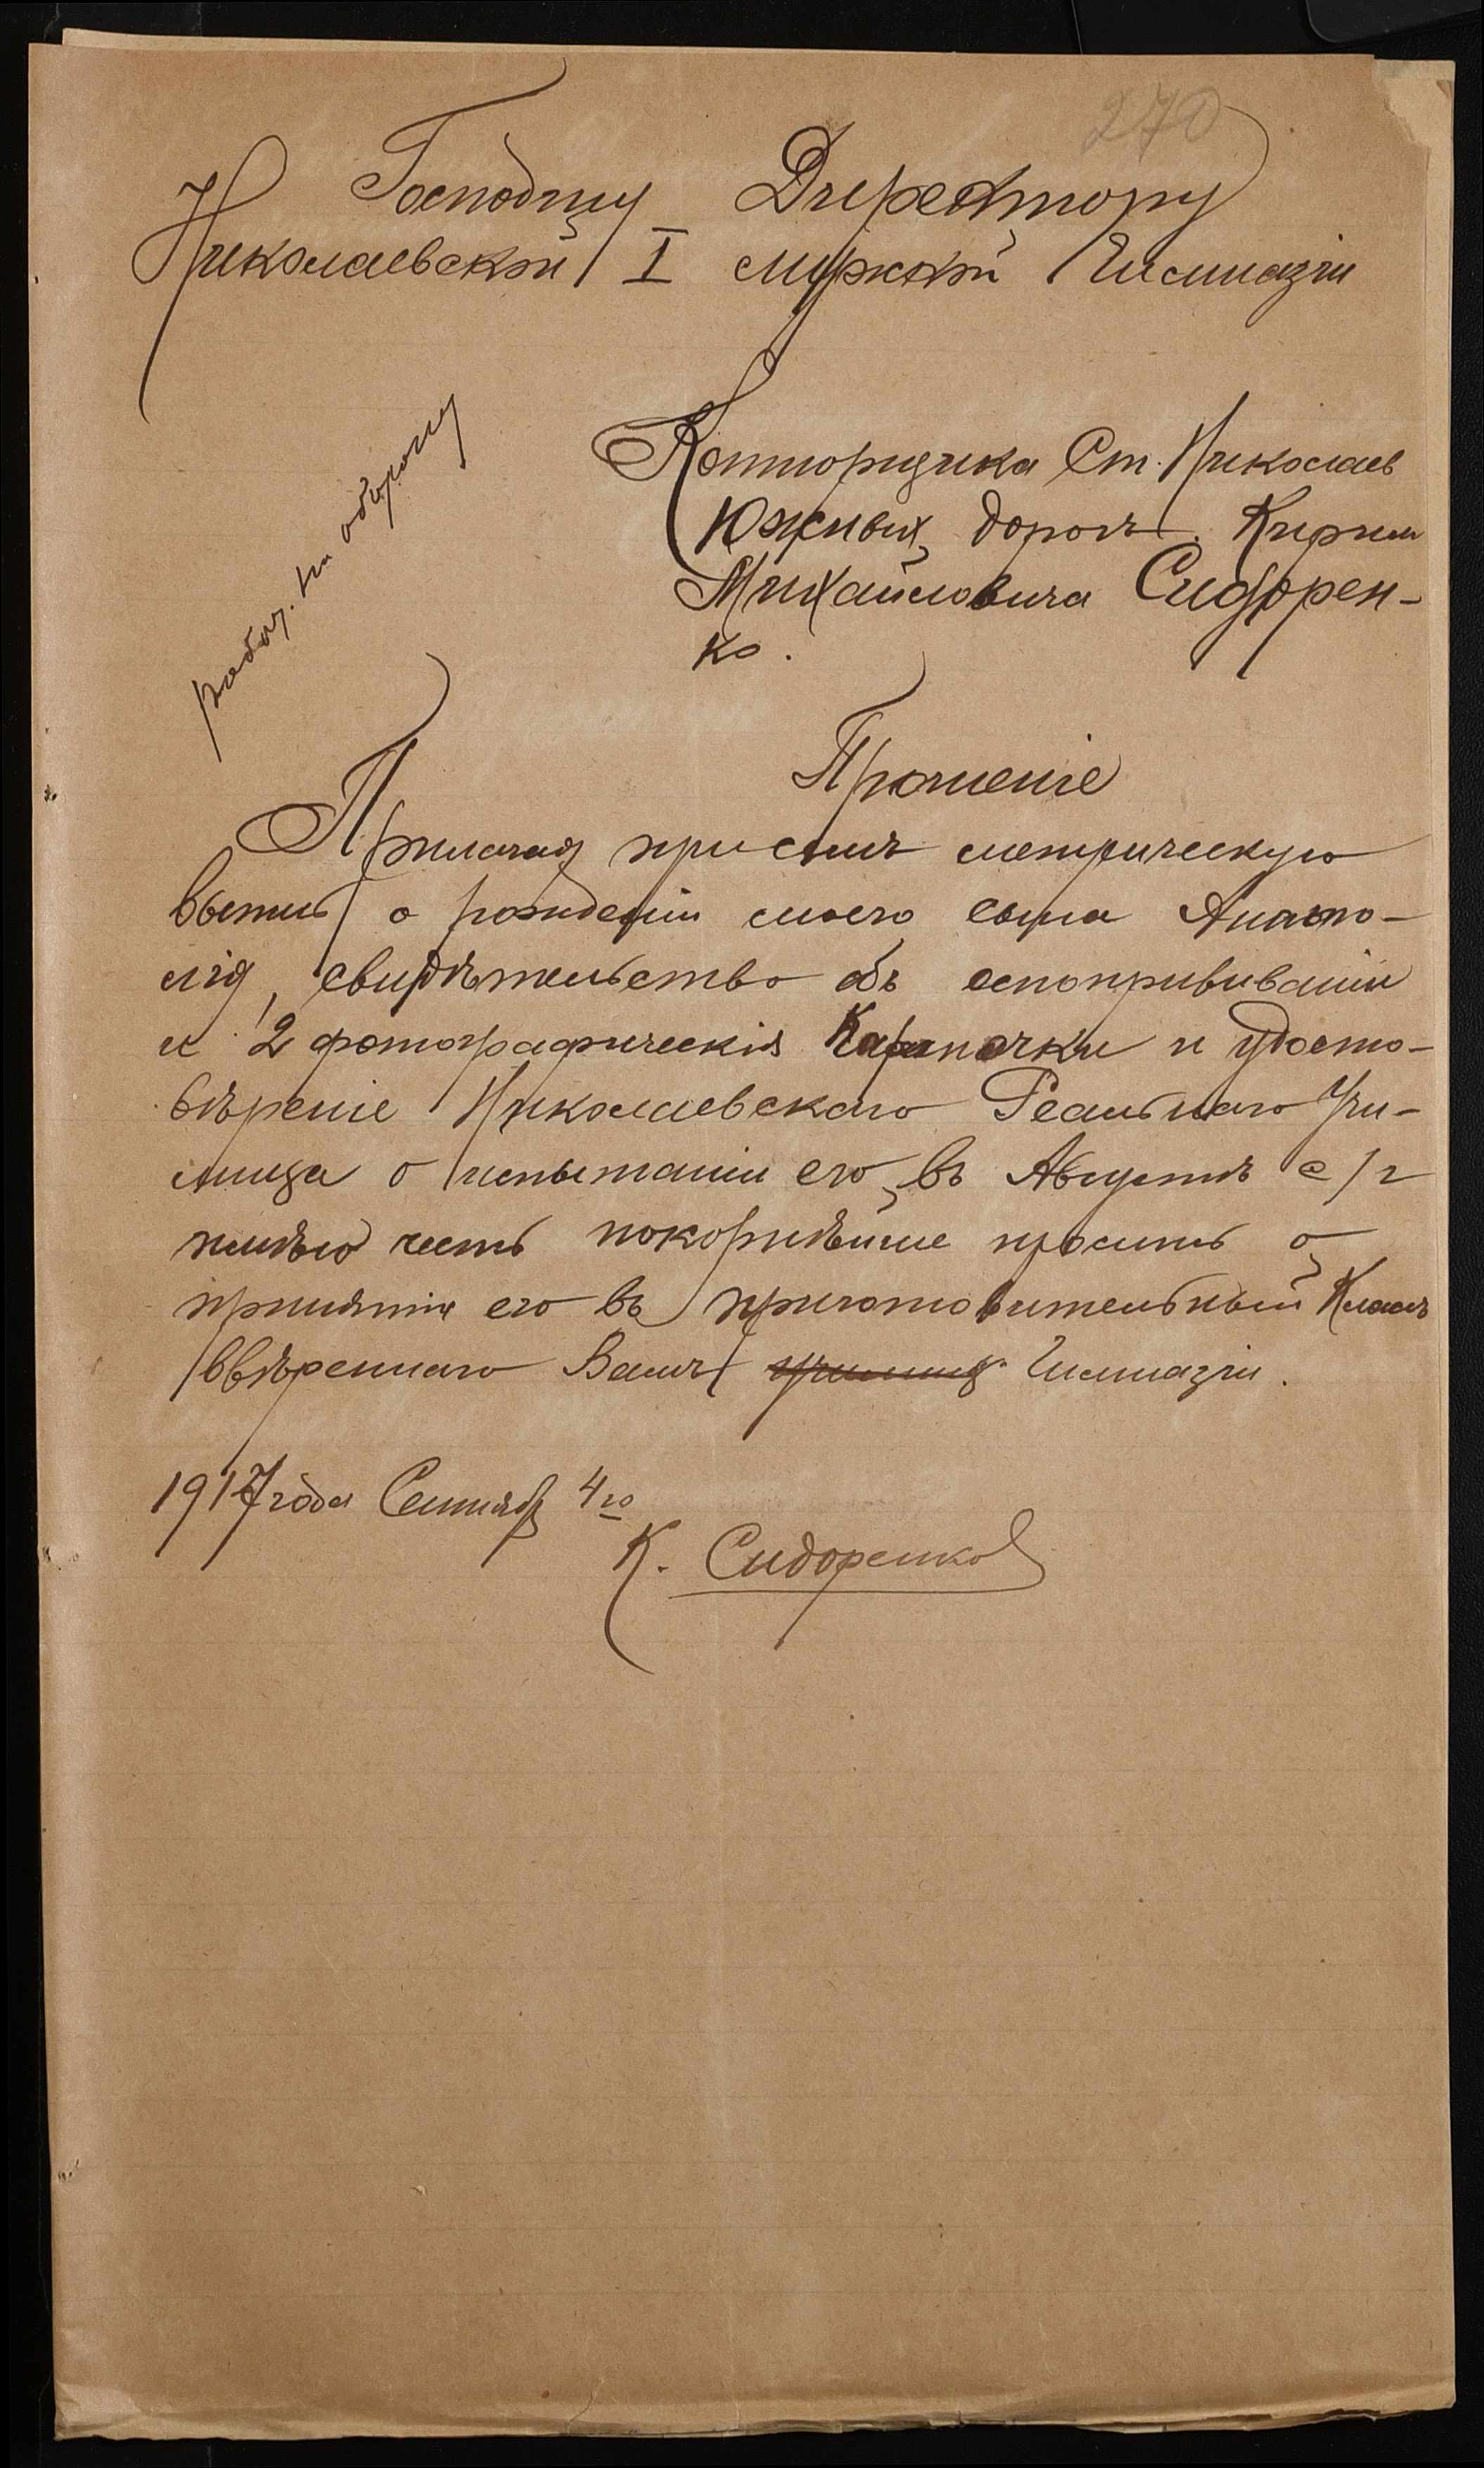 270
Господину Директору
Николаевской I мужской Гимназіи
работ. на оборону
Конторщика Ст. Николаев
Южных дорогъ. Кирил
Михайловича Сидорен-
ко.
Прошение
Прилагая при семъ метрическую
выпись о рожденіи моего сына Анато-
лія, свидѣтельство объ оспопрививаніи
и 2 фотографическія карточки и удосто-
вѣреніе Николаевскаго Реальнаго Учи-
лища о испытаніи его въ Августѣ с/г
имѣю честь покорнѣйше просить о
принятіи его въ приготовительный Классъ
ввѣреннаго Вамъ училища Гимназіи.
1917 года Сентябр 4го
К. Сидоренко